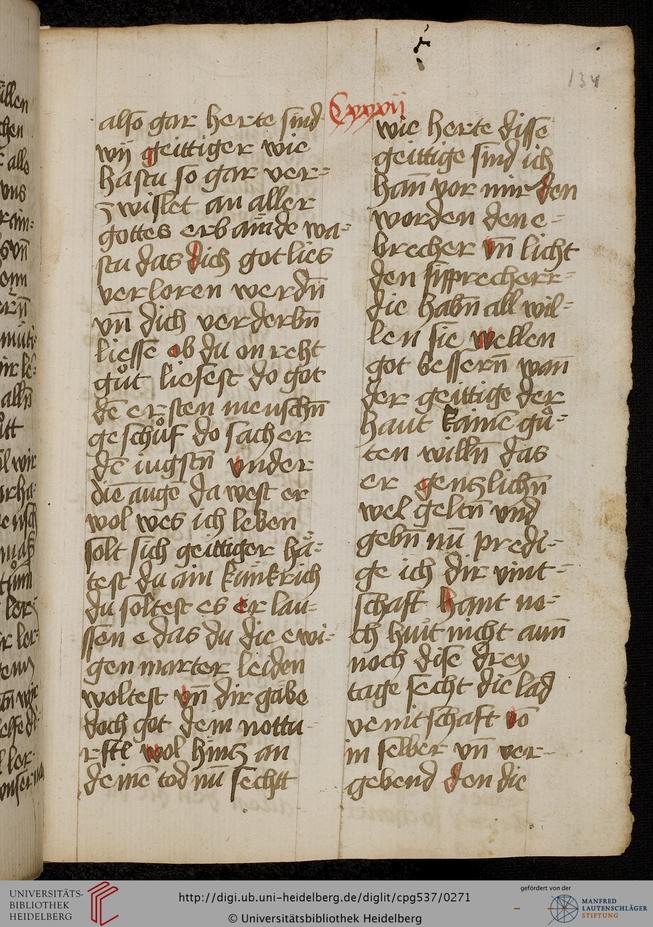 134
Cxxxvij
also gar herte sind
wij geittiger wie
hastu so gar ver-
zwiflet an aller
gottes erbaͤmde wa-
stu das dich got lies
verloren werdn̄
vn̄ dich verderbn̄
liesse ob du on reht
guͦt liefest do got
dē ersten menschn̄
geschuͦf do sach er
dē iugstn̄ vnder
die auge da west er
wol wes ich leben
solt sich geittiger haͤ-
test du ain kunkrich
du soltest es er lau-
ssen e das du die ewi-
gen marter leiden
woltest vn̄ dir gabe
doch got dein nottu-
rftl wol hintz an
deinē tod nu sechtt
wie herte disse
geittige sind ich
han̄ vor mir den
worden den e-
brecher vn̄ licht
den
die habn̄ all wil-
len sie wellen
got bessern̄ wan̄
der geittige der
haut kainē guͦ-
ten willn̄ das
er gentzlichn̄
wel geltn̄ vnd
gebn̄ nu predi-
ge ich dir vint-
schaft hant no-
ch huͤt nicht
noch dise drey
tage secht die lad
vō
in selber vn̄ ver-
gebend den die
UNIVERSITÄTS-
BIBLIOTHEK
HEIDELBERG
http://digi.ub.uni-heidelberg.de/diglit/cpg537/0271
© Universitätsbibliothek Heidelberg
gefördert von der
MANFRED
LAUTENSCHLÄGER
STIFTUNG